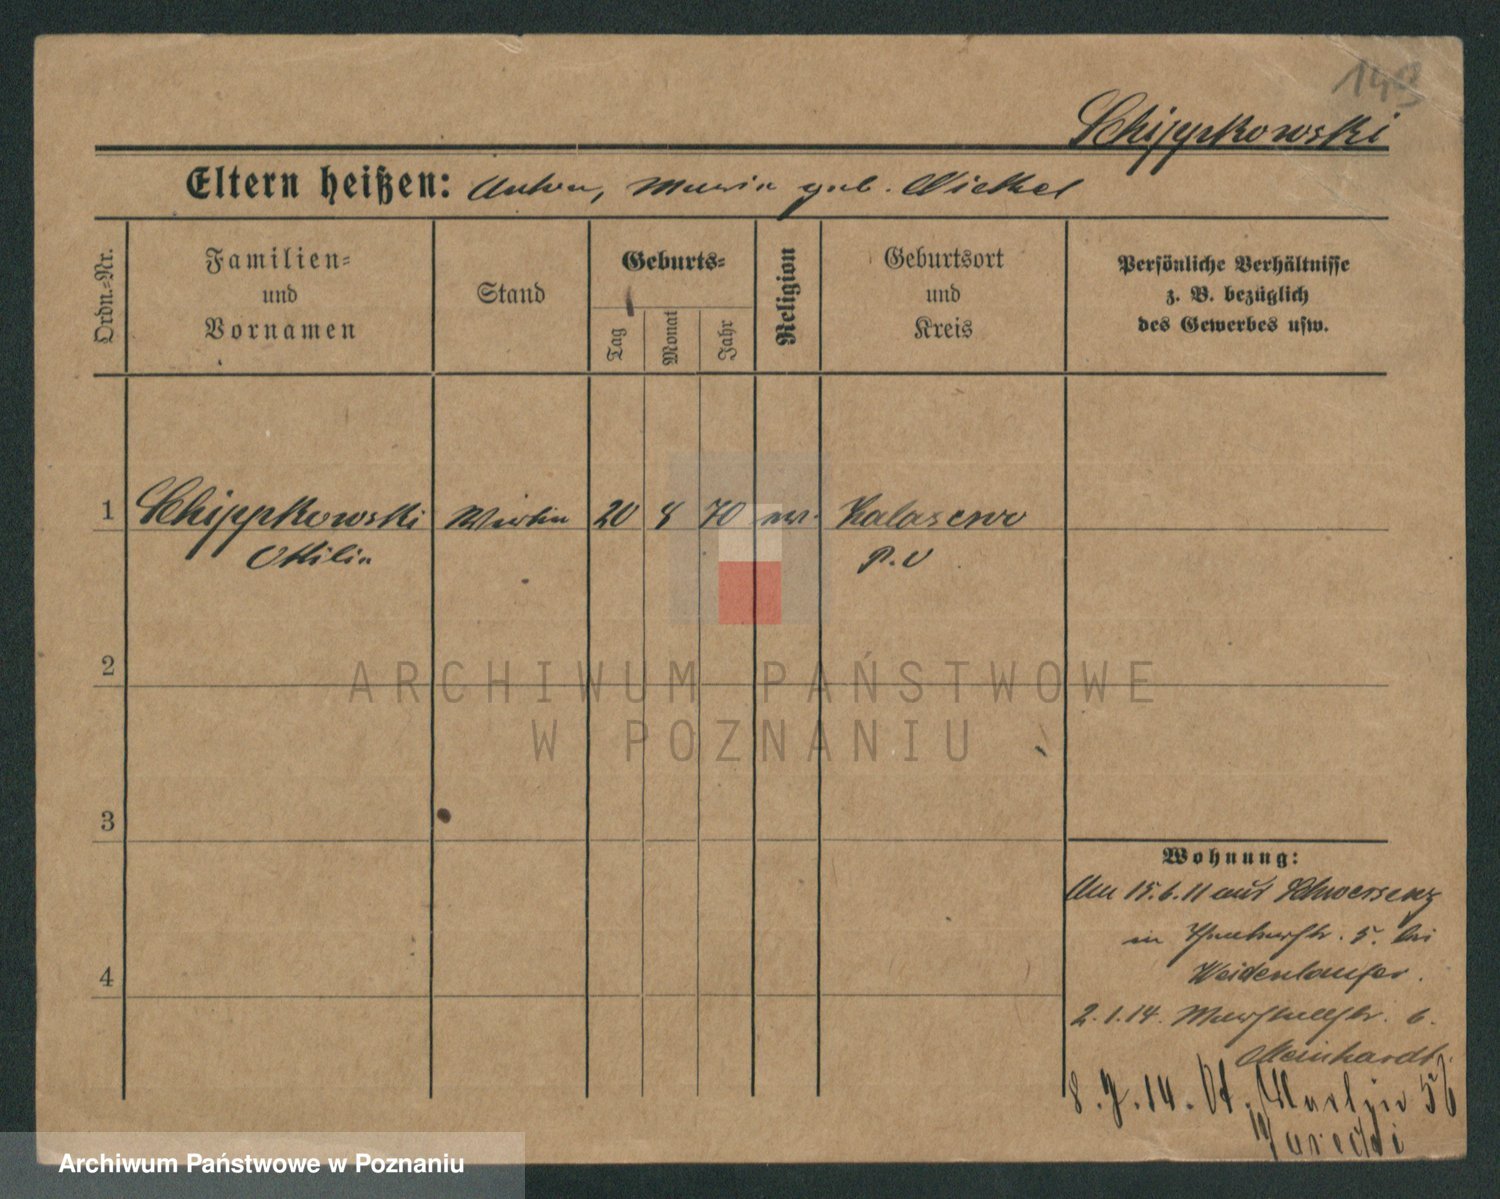 143
Schippkowski
Eltern heißen: Anton, Maria geb. Nickel
Ordn.=Nr.
Familien=
und
Vornamen
Stand
Geburts=
Tag
Monat
Jahr
Religion
Geburtsort
und
Kreis
Persönliche Verhältnisse
z. B. bezüglich
des Gewerbes usw.
1 Schippkowski 20 8 70 Kalasewo
Ottilia P.O
2
3
4
ARCHIWUM PAŃSTWOWE
W POZNANIU
Wohnung:
Am 15.6.11 aus Schwersenz
in 5. bei
Weidenlaufer.
2.1.14. 6.
Meinhardt
8.7.14. St. Martin 56
Jarecki
Archiwum Państwowe w Poznaniu